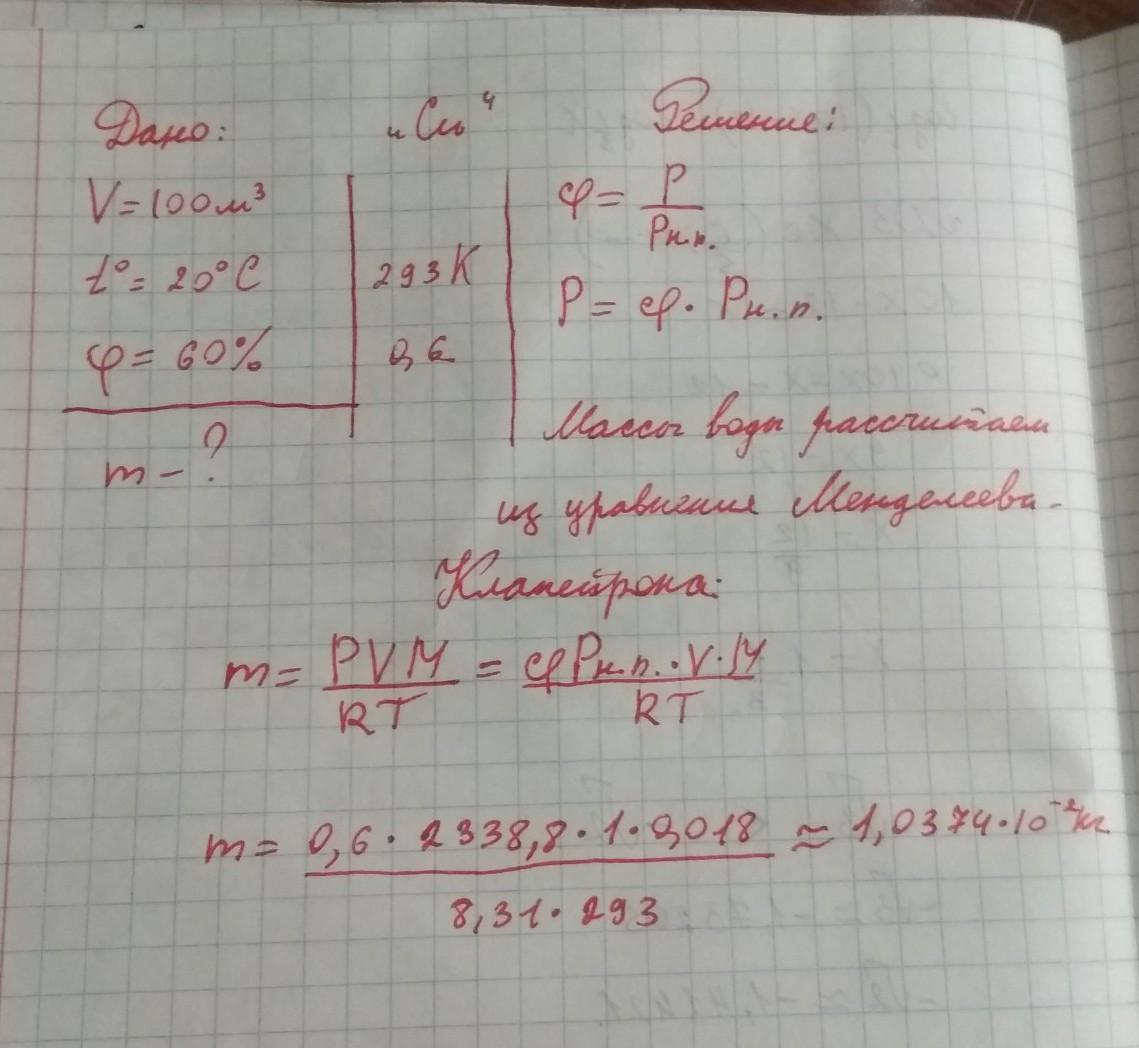 Дано: „Си“ Решение:
V = 100 м³
t° = 20°C 293 К
φ = 60% 0,6
m - ?
φ = P / Pн.п.
P = φ · Pн.п.
Массы воды рассчитаем
из уравнения Менделеева-
Клапейрона:
m = PVM / RT = φPн.п. · V · M / RT
m = 0,6 · 2338,8 · 1 · 0,018 / 8,31 · 293 ≈ 1,0374 · 10⁻² кг